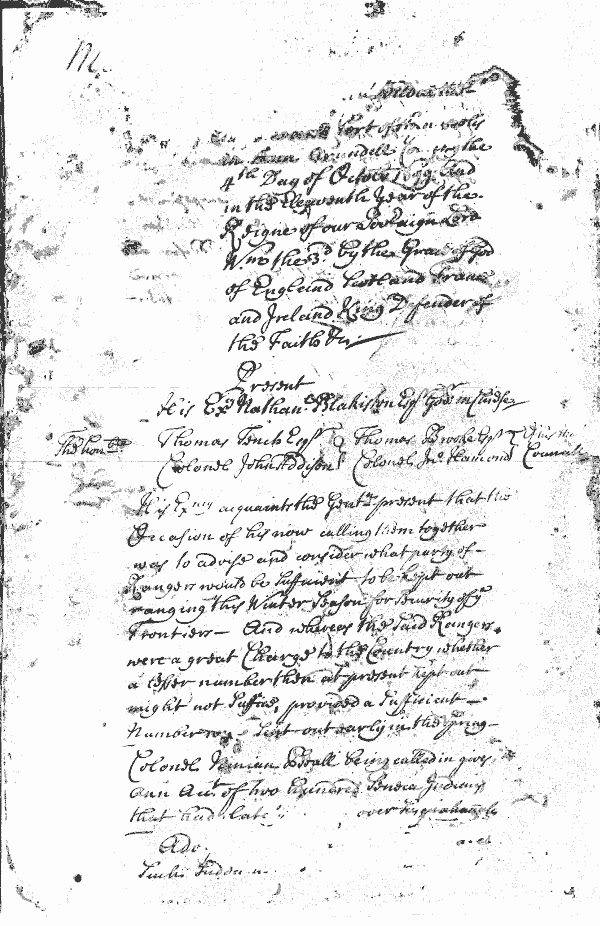 M
Port of Annapolis
in Ann Arundell Co. on the
4th Day of October 1699 And
in the Eleventh Year of the
Reigne of our Soveraign Lord
Wm the 3d by the Grace of God
of England Scotland France
and Ireland King Defender of
the Faith &c
Present
His Exy Nathan: Blakiston Esqr Govr in Cheife
The honble Thomas Tench Esqr Thomas Brooke Esqr of his Maj
Colonel John Addison Colonel Jno. Hamond Councill
His Exncy acquaints the Gentn present that the
Occasion of his now calling them together
was to advise and consider what party of
Rangers would be sufficient to be kept out
ranging this Winter Season for security of ye
Frontiers - And whereas the said Rangers
were a great Charge to the Country whether
a lesser number then at present kept out
might not suffice, provided a sufficient
Number were sent out early in the Spring
Colonel Ninian Beall being called in gives
ann Acct of two hundred Seneca Indians
that had late over
Adv